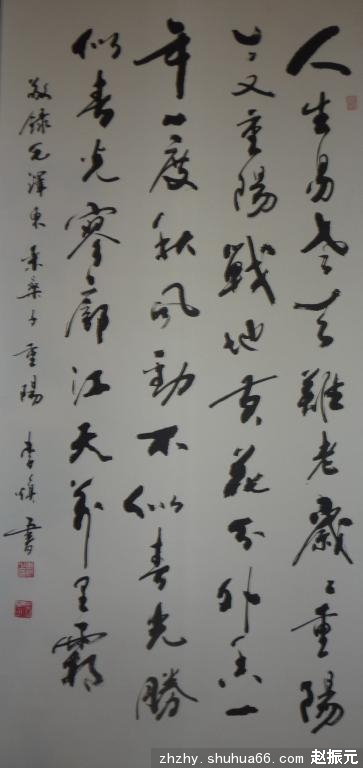 人生易老天難老歲々重陽
今又重陽戰地黄花分外香一
年一度秋風勁不似春光勝
似春光寥廓江天萬里霜
敬錄毛澤東采桑子重陽 李書
zhzhy.shuhua66.com 赵振元